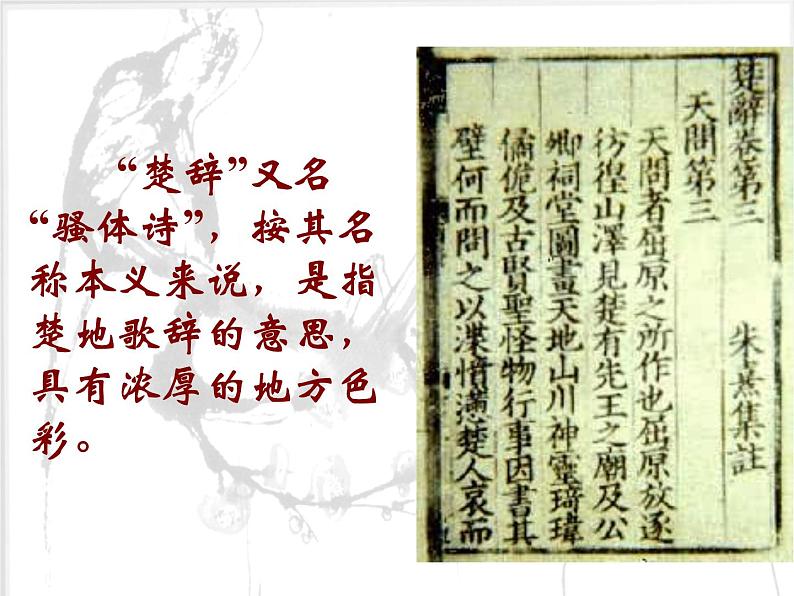 “楚辞”又名
“骚体诗”，按其名
称本义来说，是指
楚地歌辞的意思，
具有浓厚的地方色
彩。
楚辭卷第三 朱熹集註
天問第三
天問者屈原之所作也屈原放逐
彷徨山澤見楚有先王之廟及公
卿祠堂圖畫天地山川神靈琦瑋
僑佹及古賢聖怪物行事因書其
壁何而問之以渫憤懣楚人哀而